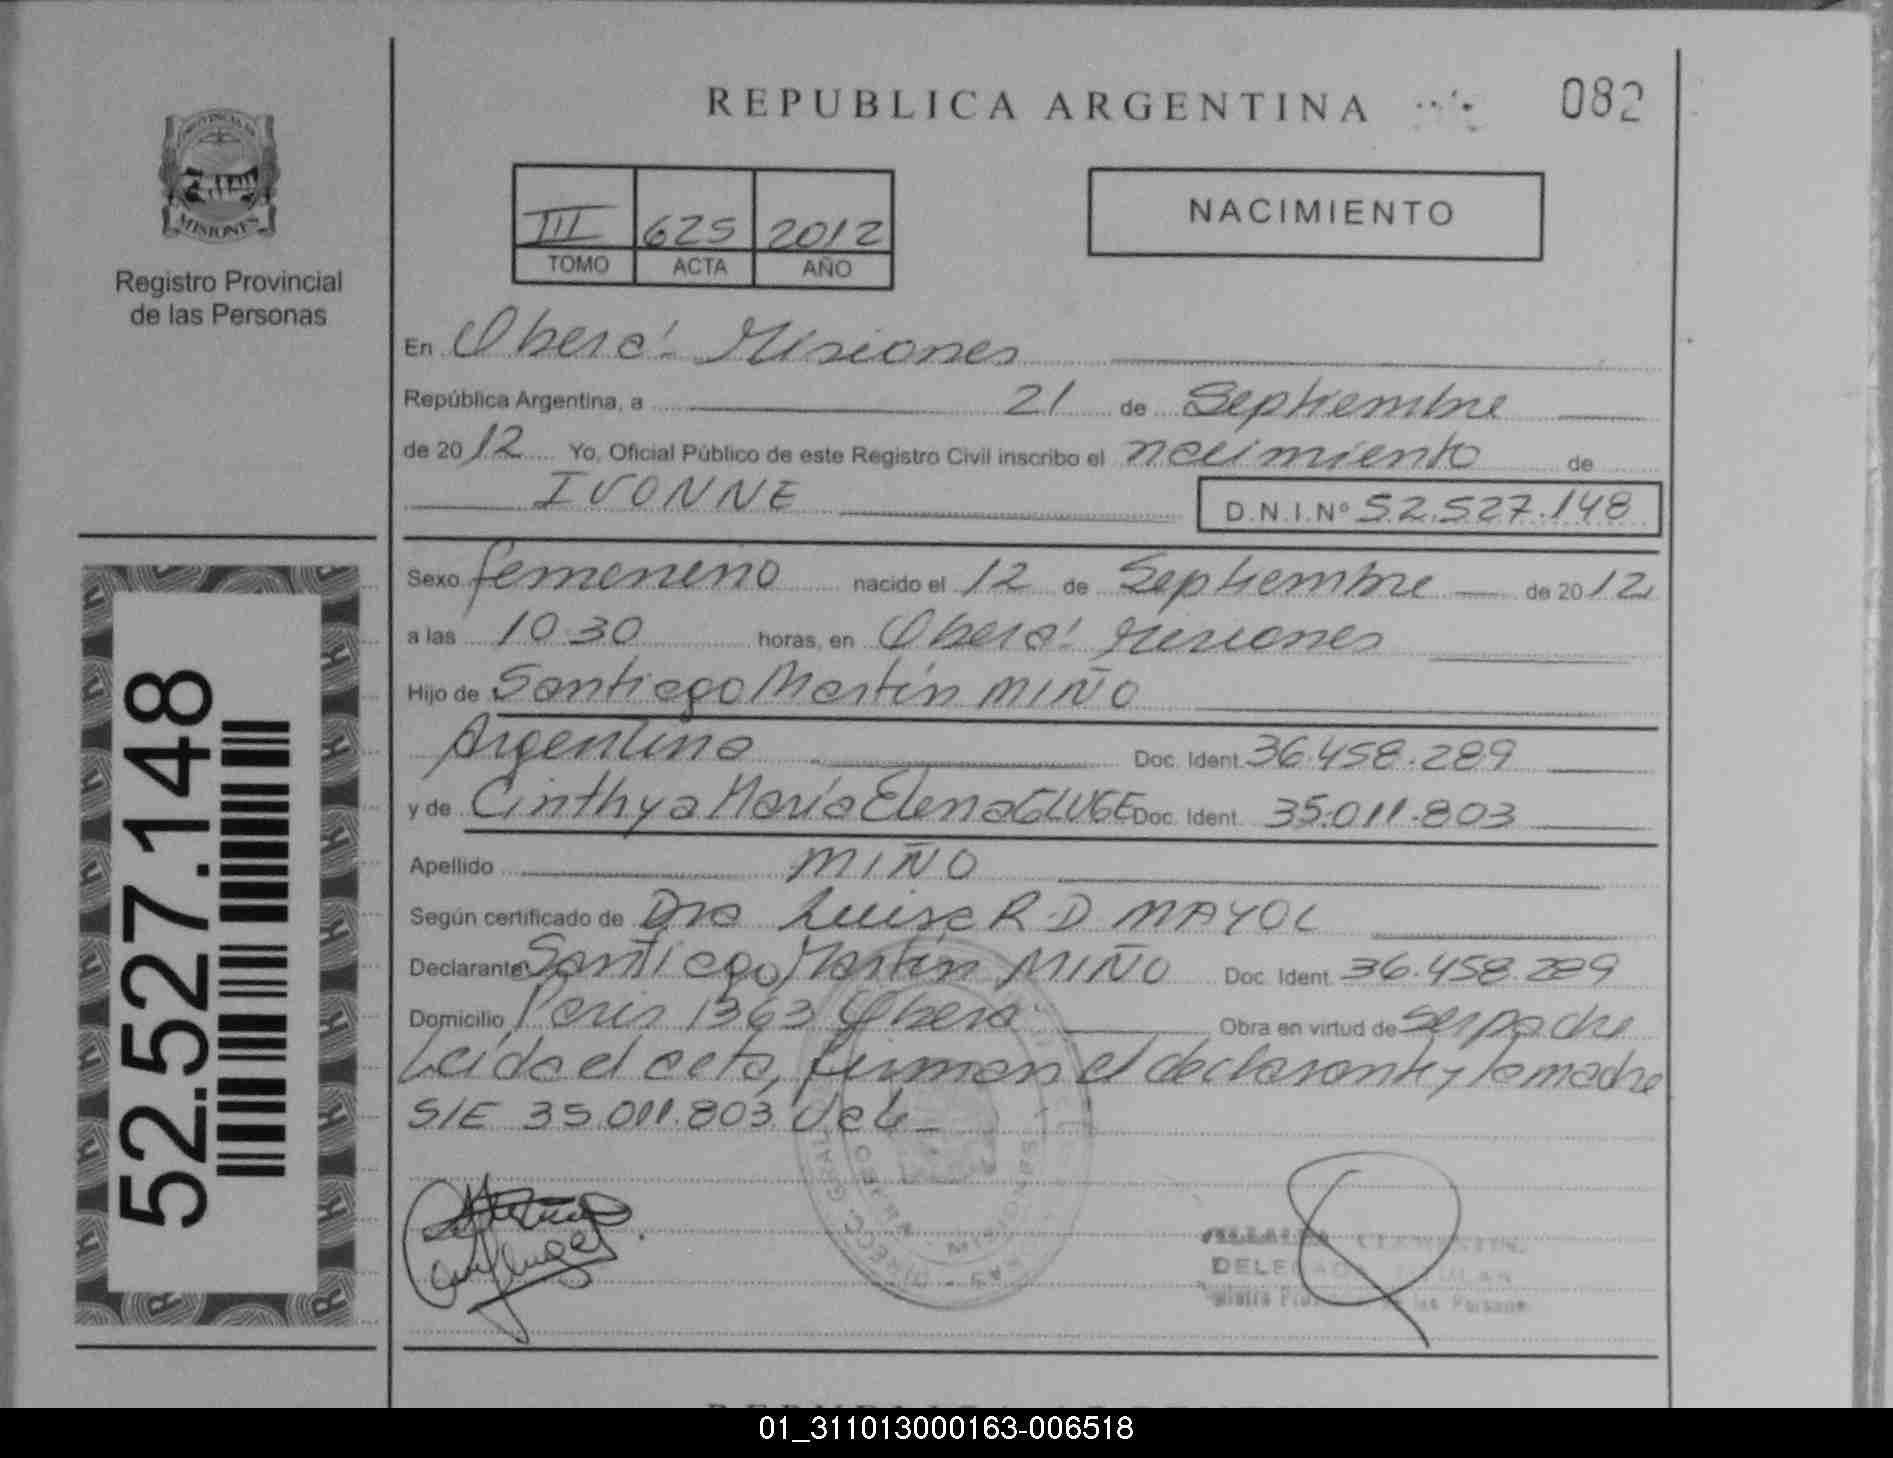 REPUBLICA ARGENTINA
082
PROVINCIA DE
MISIONES
Registro Provincial
de las Personas
III 625 2012
TOMO ACTA AÑO
NACIMIENTO
En Oberá Misiones
República Argentina, a 21 de Septiembre
de 2012 Yo, Oficial Público de este Registro Civil inscribo el nacimiento de
IVONNE D.N.I.Nº 52.527.148
Sexo femenino nacido el 12 de Septiembre de 2012
a las 10.30 horas, en Oberá Misiones
Hijo de Santiago Martín MIÑO
Argentino Doc. Ident. 36.458.289
y de Cinthya María Elena GLUGE Doc. Ident. 35.011.803
Apellido MIÑO
Según certificado de Dra Luisa R.D MAYOL
Declarante Santiago Martín MIÑO Doc. Ident. 36.458.289
Domicilio Paris 1363 Oberá Obra en virtud de ser padre
Leída el acta, firman el declarante y la madre
S/E 35.011.803. Vale
52.527.148
VILLALBA CLEMENTIN
DELEGADO TITULAR
de las Personas
01_311013000163-006518